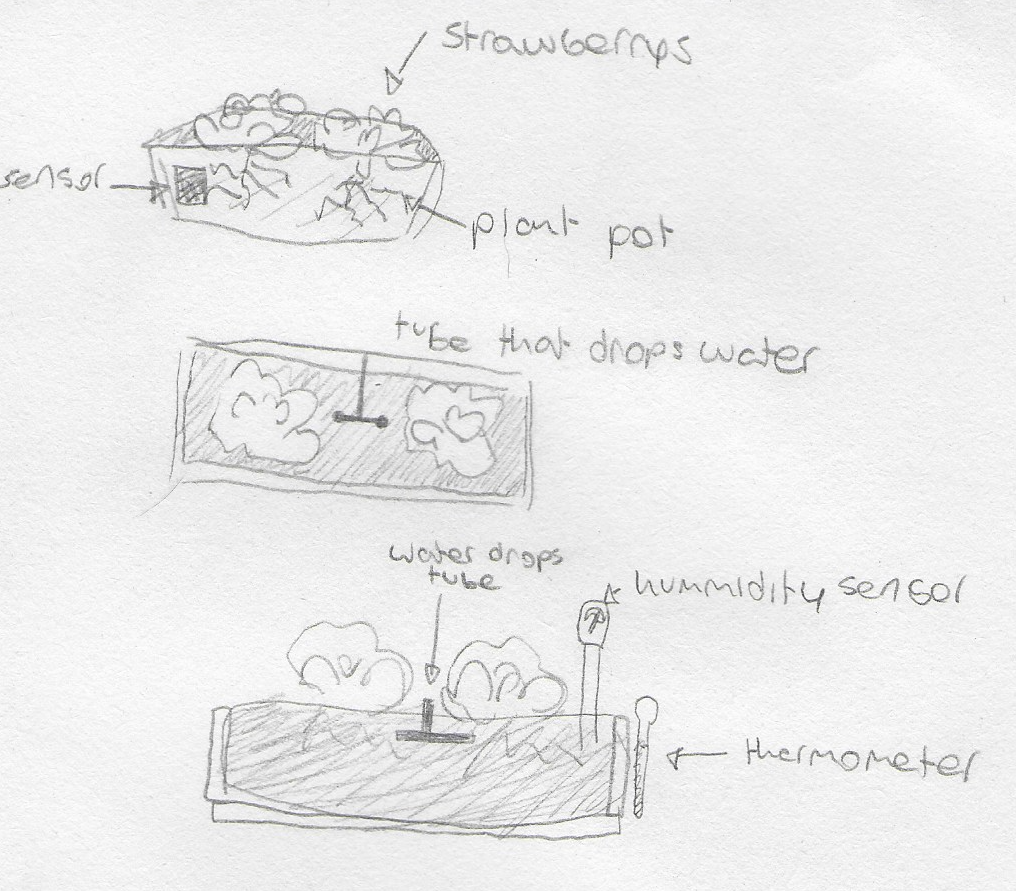 strawberrys
sensor
plant pot
tube that drops water
water drops
tube
hummidity sensor
thermometer